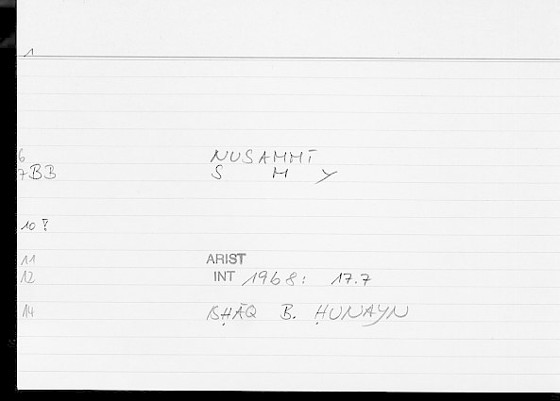 1
6 NUSAMMĪ
7 BB S M Y
10 ?
11 ARIST
12 INT 1968: 17.7
14 ISḤĀQ B. ḤUNAYN